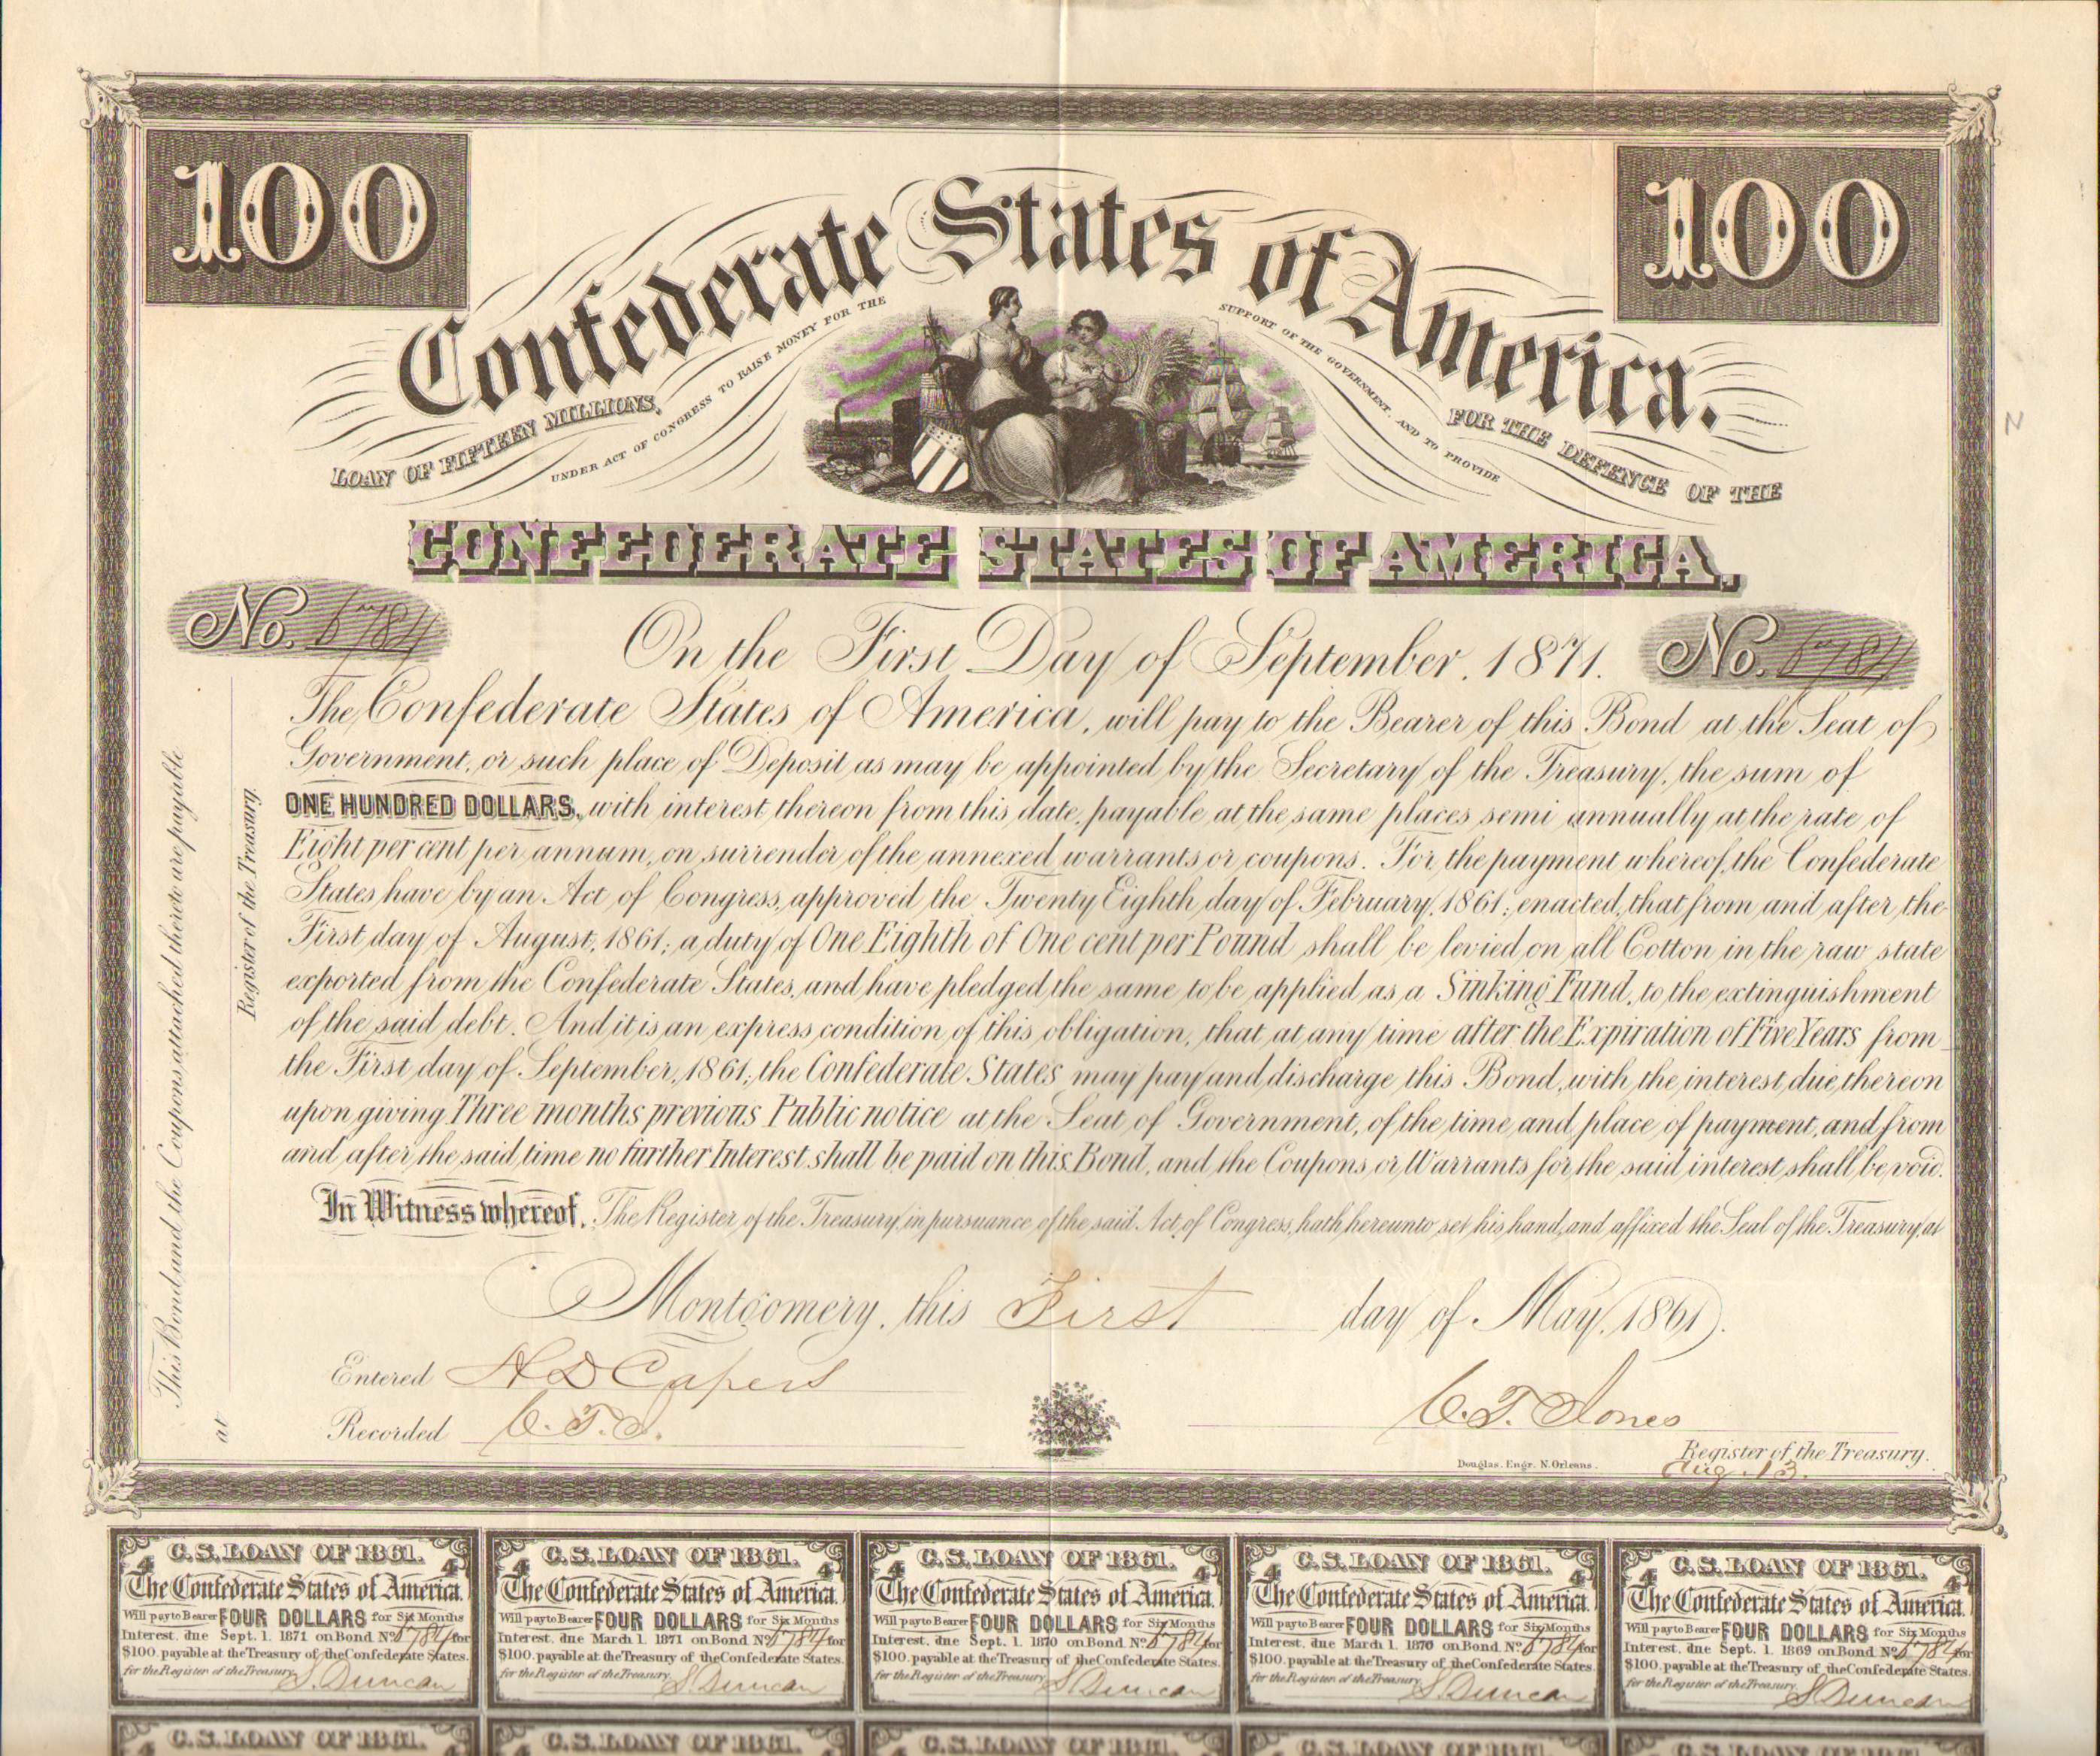 100
100
Confederate States of America.
LOAN OF FIFTEEN MILLIONS,
UNDER ACT OF CONGRESS TO RAISE MONEY FOR THE
SUPPORT OF THE GOVERNMENT, AND TO PROVIDE
FOR THE DEFENCE OF THE
CONFEDERATE STATES OF AMERICA,
No. 6784
On the First Day of September, 1871.
No. 6784
The Confederate States of America, will pay to the Bearer of this Bond at the Seat of
Government, or such place of Deposit as may be appointed by the Secretary of the Treasury, the sum of
ONE HUNDRED DOLLARS, with interest thereon from this date, payable at the same places semi annually at the rate of
Eight per cent per annum, on surrender of the annexed warrants or coupons. For the payment whereof, the Confederate
States have by an Act of Congress, approved the Twenty Eighth day of February, 1861; enacted, that from and after the
First day of August, 1861; a duty of One Eighth of One cent per Pound shall be levied on all Cotton in the raw state
exported from the Confederate States, and have pledged the same to be applied as a Sinking Fund, to the extinguishment
of the said debt. And it is an express condition of this obligation, that at any time after the Expiration of Five Years from
the First day of September, 1861; the Confederate States may pay and discharge this Bond, with the interest due thereon
upon giving Three months previous Public notice at the Seat of Government, of the time and place of payment, and from
and after the said time no further Interest shall be paid on this Bond, and the Coupons or Warrants for the said interest shall be void.
In Witness whereof, The Register of the Treasury, in pursuance of the said Act of Congress, hath hereunto set his hand, and affixed the Seal of the Treasury, at
Montgomery, this First day of May, 1861.
Entered H D Capers
Recorded C. T. J.
C. T. Jones
Register of the Treasury.
Aug. 13.
Douglas. Engr. N. Orleans.
This Bond, and the Coupons attached thereto are payable
at
Register of the Treasury.
N
C.S. LOAN OF 1861.
4 4
The Confederate States of America.
Will pay to Bearer FOUR DOLLARS for Six Months
Interest, due Sept. 1. 1871 on Bond No 6784 for
$100. payable at the Treasury of the Confederate States.
for the Register of the Treasury. S. Duncan
C.S. LOAN OF 1861.
4 4
The Confederate States of America.
Will pay to Bearer FOUR DOLLARS for Six Months
Interest, due March 1. 1871 on Bond No 6784 for
$100. payable at the Treasury of the Confederate States.
for the Register of the Treasury. S. Duncan
C.S. LOAN OF 1861.
4 4
The Confederate States of America.
Will pay to Bearer FOUR DOLLARS for Six Months
Interest, due Sept. 1. 1870 on Bond No 6784 for
$100. payable at the Treasury of the Confederate States.
for the Register of the Treasury. S. Duncan
C.S. LOAN OF 1861.
4 4
The Confederate States of America.
Will pay to Bearer FOUR DOLLARS for Six Months
Interest, due March 1. 1870 on Bond No 6784 for
$100. payable at the Treasury of the Confederate States.
for the Register of the Treasury. S. Duncan
C.S. LOAN OF 1861.
4 4
The Confederate States of America.
Will pay to Bearer FOUR DOLLARS for Six Months
Interest, due Sept. 1. 1869 on Bond No 6784 for
$100. payable at the Treasury of the Confederate States.
for the Register of the Treasury. S. Duncan
C.S. LOAN OF 1861.
C.S. LOAN OF 1861.
C.S. LOAN OF 1861.
C.S. LOAN OF 1861.
C.S. LOAN OF 1861.